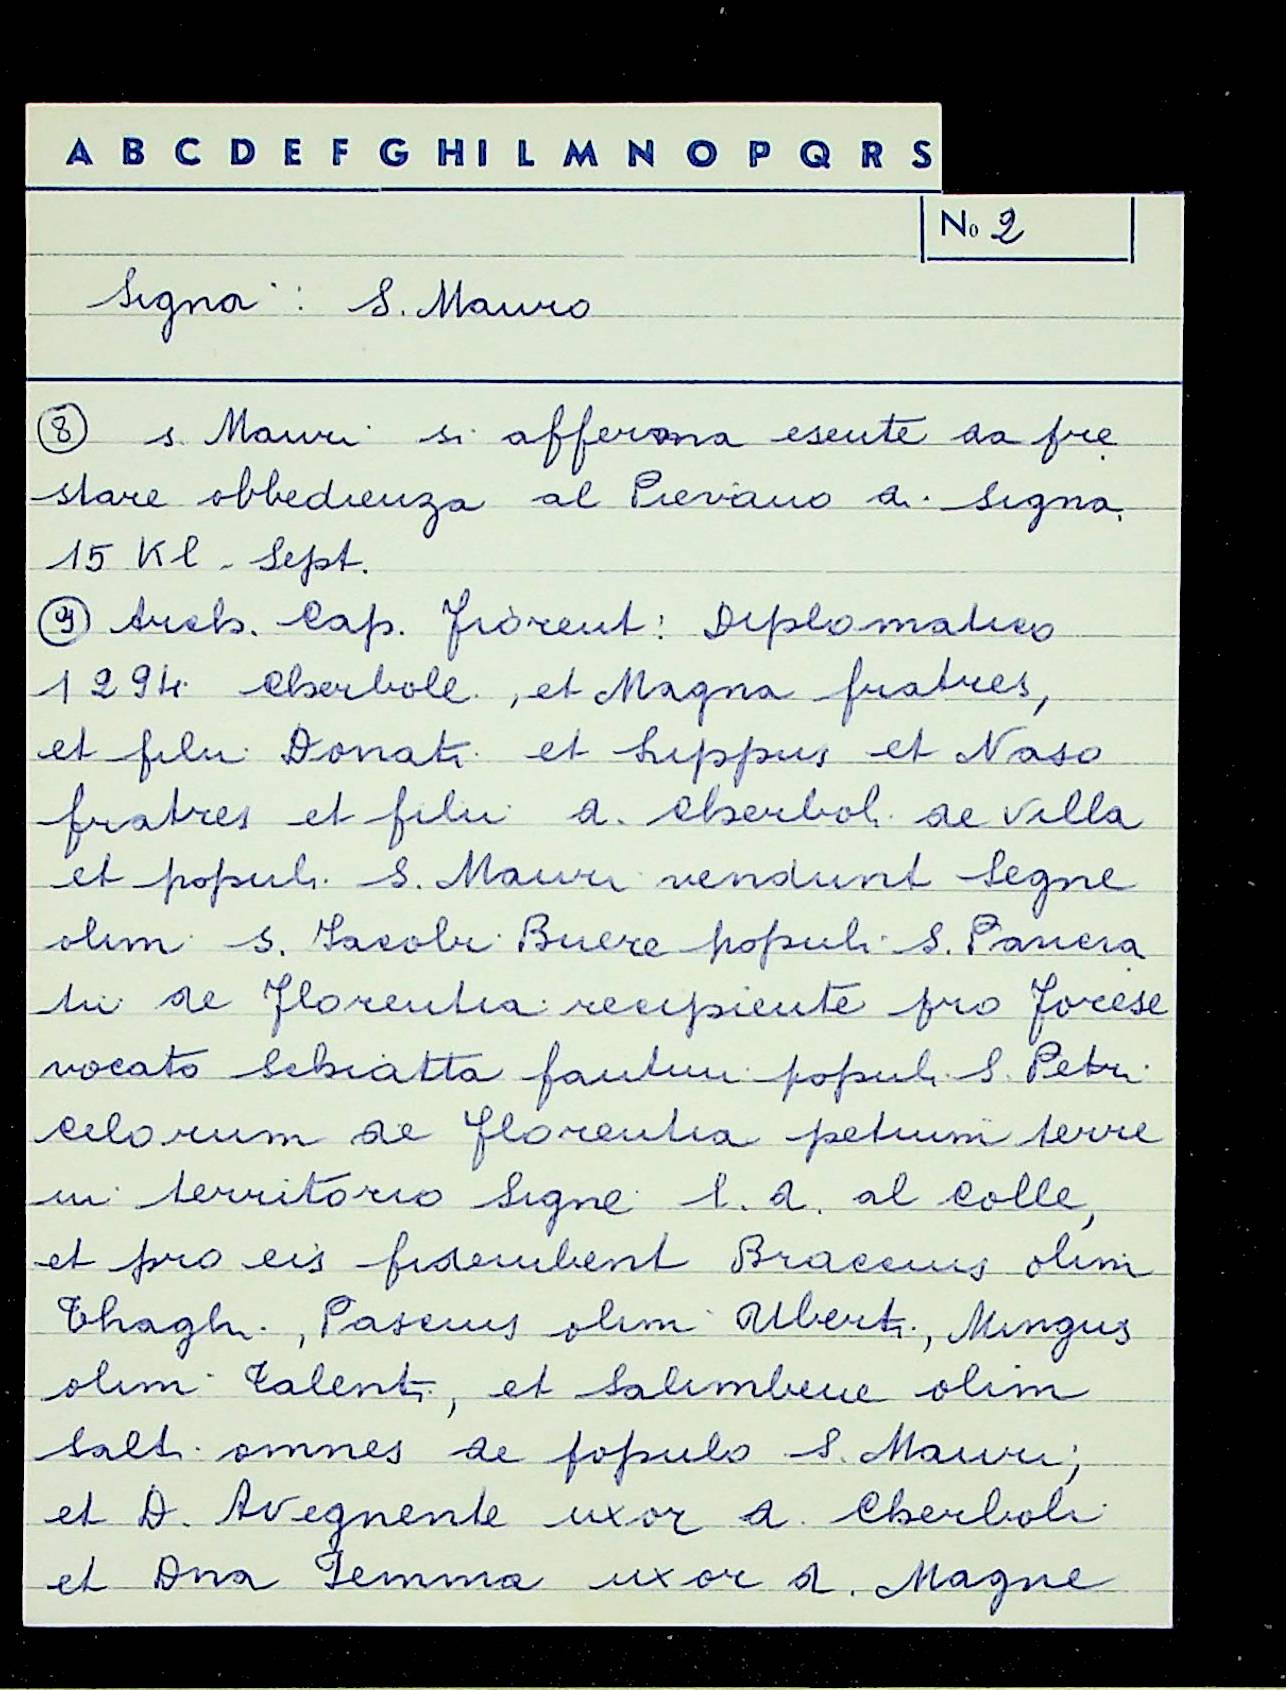 A B C D E F G H I L M N O P Q R S
No 2
Signa : S. Mauro
8 s. Mauri si afferma esente da pre
stare obbedienza al Pievano di Signa.
15 Kl. Sept.
9 Arch. Cap. Fiorent: Diplomatico
1294 Cherbole, et Magna fratres,
et filii Donati et Lippus et Naso
fratres et filii d. Cherboli de Villa
et populi S. Mauri vendunt Segne
olim s. Jacobi Buere populi S. Pancra
tii de Florentia recipiente pro Forese
vocato Schiatta fantini populi S. Petri
Celorum de Florentia petium terre
in territorio Signe l. d. al Colle,
et pro eis fideiubent Braccius olim
Thaghi, Pascius olim Uberti, Mingus
olim Talenti, et Salimbene olim
Salti omnes de populo S. Mauri;
et D. Avegnente uxor d. Cherboli
et Dna Gemma uxor d. Magne